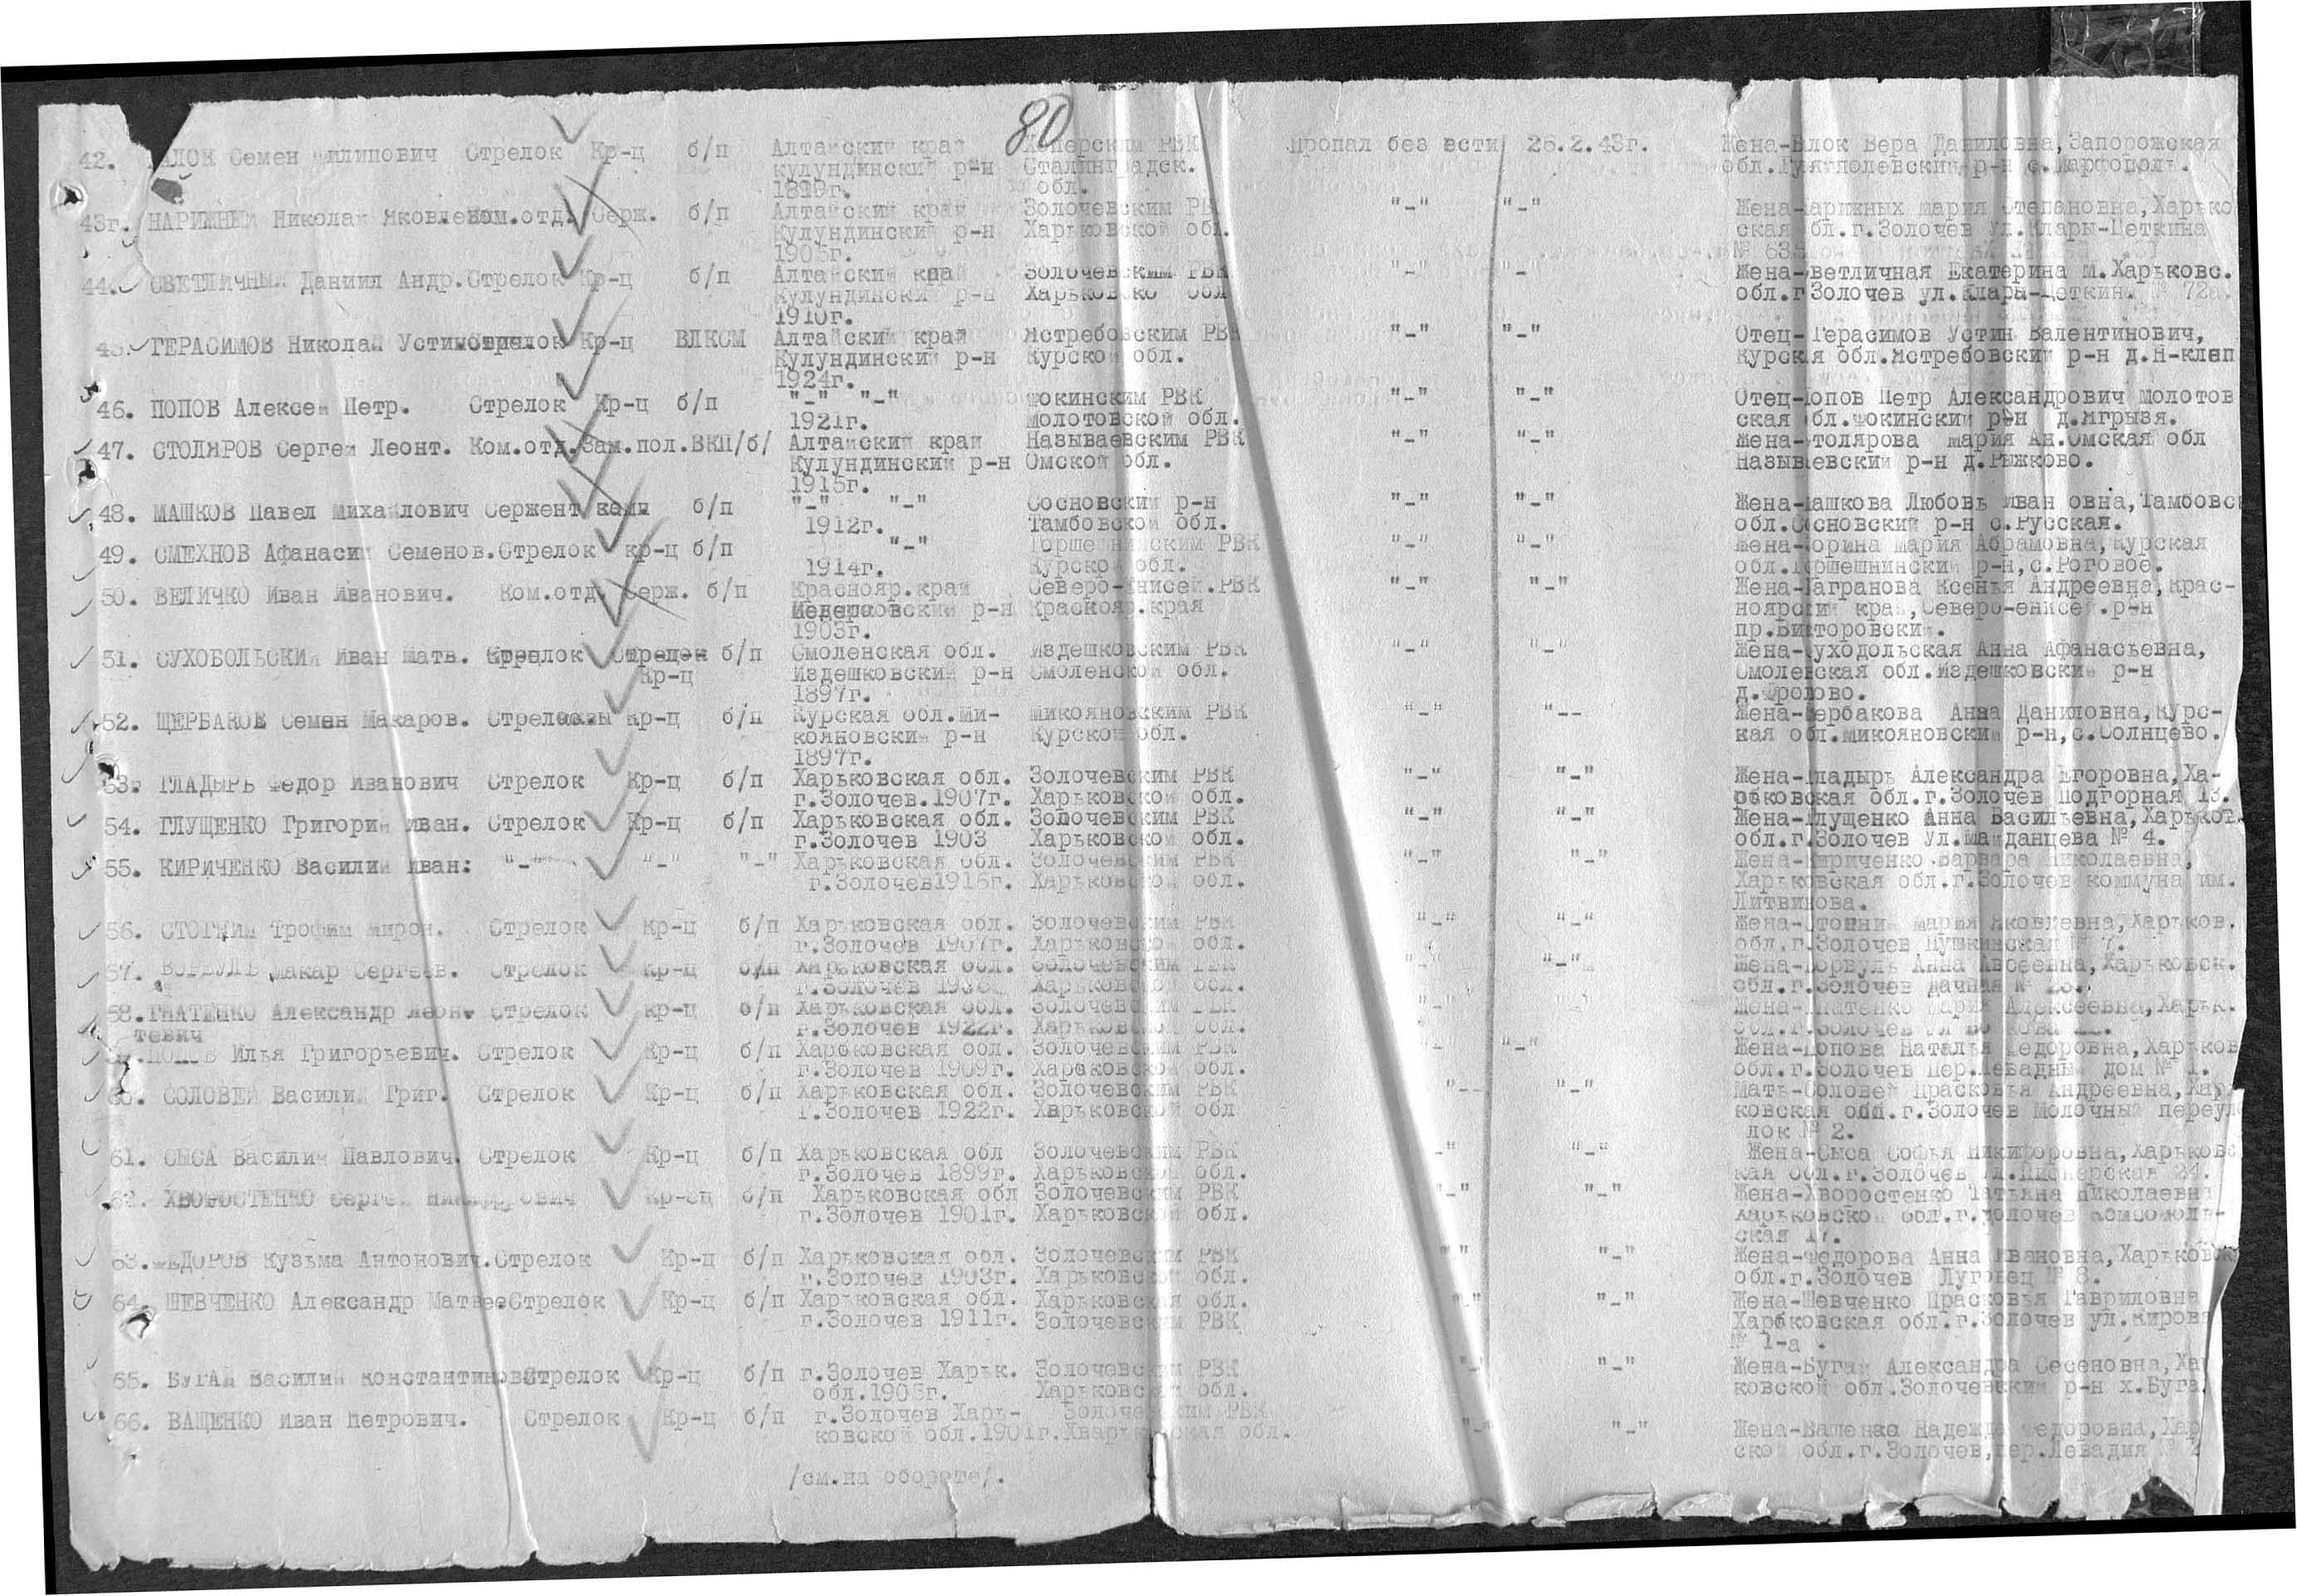 80
42. БЛОК Семен Филипович Стрелок Кр-ц б/п Алтайский край Хоперским РВК Пропал без вести 26.2.43г. Жена-Блок Вера Даниловна, Запорожская
кулундинский р-н Сталинградск. обл.Гуляйполевский р-н с.Марфополь.
обл.
43г. НАРИЖНЫЙ Николай Яковлев Ком.отд. Серж. б/п Алтайский край Золочевским РВ "-" "-" Жена-Нарижных Мария Степановна, Харько
Кулундинский р-н Харьковской обл. ская обл.г.Золочев Ул.Клары-Цеткина
№ 63
44. СВЕТЛИЧНЫЙ Даниил Андр. Стрелок Кр-ц б/п Алтайский край Золочевским РВК "-" "-" Жена-Светличная Екатерина М.Харьковс.
Кулундинский р-н Харьковско обл обл.г Золочев ул.Клары-Цеткина № 72а.
1910г.
45. ГЕРАСИМОВ Николай Устимович Стрелок Кр-ц ВЛКСМ Алтайский край Ястребовским РВК "-" "-" Отец-Герасимов Устин Валентинович,
Кулундинский р-н Курской обл. Курская обл.Ястребовский р-н д.Н-клеп
1924г.
46. ПОПОВ Алексей Петр. Стрелок Кр-ц б/п "-" "-" Фокинским РВК "-" "-" Отец-Попов Петр Александрович Молотов
1921г. Молотовской обл. ская обл.Фокинский р-н д.Агрызя.
47. СТОЛЯРОВ Сергей Леонт. Ком.отд. Зам.пол. ВКП/б/ Алтайский край Называевским РВК "-" "-" Жена-Столярова Мария Ан.Омская обл
Кулундинский р-н Омской обл. Называевский р-н д.Рыжково.
1915г.
48. МАШКОВ Павел Михайлович Сержент б/п "-" "-" Сосновский р-н "-" "-" Жена-Машкова Любовь Иван овна, Тамбовск
1912г. Тамбовской обл. обл.Сосновский р-н с.Русская.
49. СМЕХНОВ Афанасий Семенов. Стрелок кр-ц б/п "-" Горшечнинским РВК "-" "-" Жена-Юрина Мария Абрамовна, Курская
1914г. Курской обл. обл.Горшешнинский р-н, с.Роговое.
50. ВЕЛИЧКО Иван Иванович. Ком.отд. Серж. б/п Краснояр.край Северо-Енисей.РВК "-" "-" Жена-Тагранова Ксенья Андреевна, Крас-
р-н Краснояр.края ноярский край, Северо-енисей.р-н
1903г. пр.Викторовский.
51. СУХОБОЛЬСКИЙ Иван Матв. Стрелок Стрелок б/п Смоленская обл. Издешковским РВК "-" "-" Жена-Суходольская Анна Афанасьевна,
Кр-ц Издешковский р-н Смоленской обл. Смоленская обл.Издешковский р-н
1897г. д.Фролово.
52. ЩЕРБАКОВ Семен Макаров. Стрелок Кр-ц б/п Курская обл.Ми- Микояновским РВК "-" "-- Жена-Щербакова Анна Даниловна, Курс-
кояновский р-н Курской обл. кая обл.Микояновский р-н, с.Солнцево.
1897г.
53. ГЛАДЫРЬ Федор Иванович Стрелок Кр-ц б/п Харьковская обл. Золочевским РВК "-" "-" Жена-Гладырь Александра Егоровна, Ха-
г.Золочев.1907г. Харьковской обл. рьковская обл.г.Золочев Подгорная 13.
54. ГЛУЩЕНКО Григорий Иван. Стрелок Кр-ц б/п Харьковская обл. Золочевским РВК "-" "-" Жена-Глущенко Анна Васильевна, Харьков.
г.Золочев 1903 Харьковской обл. обл.г.Золочев Ул.Майданцева № 4.
55. КИРИЧЕНКО Василий Иван: "-" "-" "-" Харьковская обл. Золочевским РВК "-" "-" Жена-Кириченко Варвара Николаевна,
г.Золочев1916г. Харьковской обл. Харьковская обл.г.Золочев коммуна им.
Литвинова.
56. СТОГНИЙ Трофим Мирон. Стрелок Кр-ц б/п Харьковская обл. Золочевским РВК "-" "-" Жена-Стогний Мария Яковлевна, Харьков.
г.Золочев 1907г. Харьковской обл. обл.г.Золочев Пушкинская № 7.
57. ВОРВУЛЬ Макар Сергеев. Стрелок Кр-ц б/п Харьковская обл. Золочевским РВК "-" "-" Жена-Ворвуль Анна Авсеевна, Харьковск.
г.Золочев Харьковской обл. обл.г.Золочев Дачная №
58. ГНАТЕНКО Александр Леон- Стрелок Кр-ц б/п Харьковская обл. Золочевским РВК "-" Жена-Гнатенко Мария Алексеевна, Харьк.
тевич г.Золочев 1922г. Харьковской обл. обл.г.Золочев
ПОПОВ Илья Григорьевич. Стрелок Кр-ц б/п Харьковская обл. Золочевским РВК "-" Жена-Попова Наталья Федоровна, Харьков
г.Золочев 1909г. Харьковской обл. обл.г.Золочев Пер.Левадный дом № 1.
60. СОЛОВЕЙ Василий Григ. Стрелок Кр-ц б/п Харьковская обл. Золочевским РВК "-- "-" Мать-Соловей Прасковья Андреевна, Харь
г.Золочев 1922г. Харьковской обл ковская обл.г.Золочев Молочный переул
лок № 2.
61. СЫСА Василий Павлович. Стрелок Кр-ц б/п Харьковская обл Золочевским РВК -" "-" Жена-Сыса Софья Никифоровна, Харьковс
г.Золочев 1899г. Харьковской обл. кая обл.г.Золочев Ул.Пионерская 24.
62. ХВОРОСТЕНКО Сергей Никифорович Кр-ец б/п Харьковская обл Золочевским РВК "-" "-" Жена-Хворостенко Татьяна Николаевна
г.Золочев 1901г. Харьковской обл. Харьковской обл.г.Золочев Комсомоль-
ская 17.
63. ФЕДОРОВ Кузьма Антонович. Стрелок Кр-ц б/п Харьковская обл. Золочевским РВК " " "-" Жена-Федорова Анна Ивановна, Харьковск
г.Золочев 1903г. Харьковской обл. обл.г.Золочев Луговец № 8.
64. ШЕВЧЕНКО Александр Матвее Стрелок Кр-ц б/п Харьковская обл. Харьковская обл. "-" "-" Жена-Шевченко Прасковья Гавриловна
г.Золочев 1911г. Золочевским РВК Харьковская обл.г.Золочев ул.Кирова
№ 1-а .
65. БУГАЙ Василий Константинов Стрелок Кр-ц б/п г.Золочев Харьк. Золочевским РВК "-" "-" Жена-Бугай Александра Сесеновна, Ха
обл. Харьковской обл. ковской обл.Золочевский р-н х.Буга
66. ВАЩЕНКО Иван Петрович. Стрелок Кр-ц б/п г.Золочев Харь- Золочевским РВК "-" "-" Жена-Ващенко Надежда Федоровна, Хар
ковской обл.1901г. Харьковская обл. ской обл.г.Золочев, пер.Левадия
/см.на обороте/.